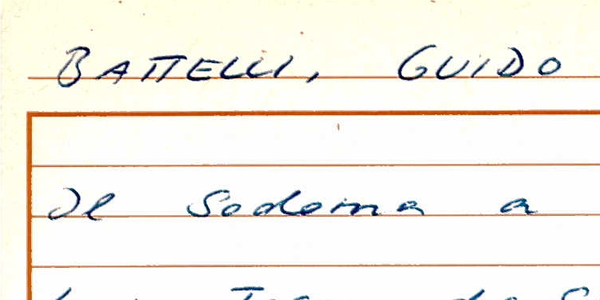 BATTELLI, GUIDO
Il Sodoma a